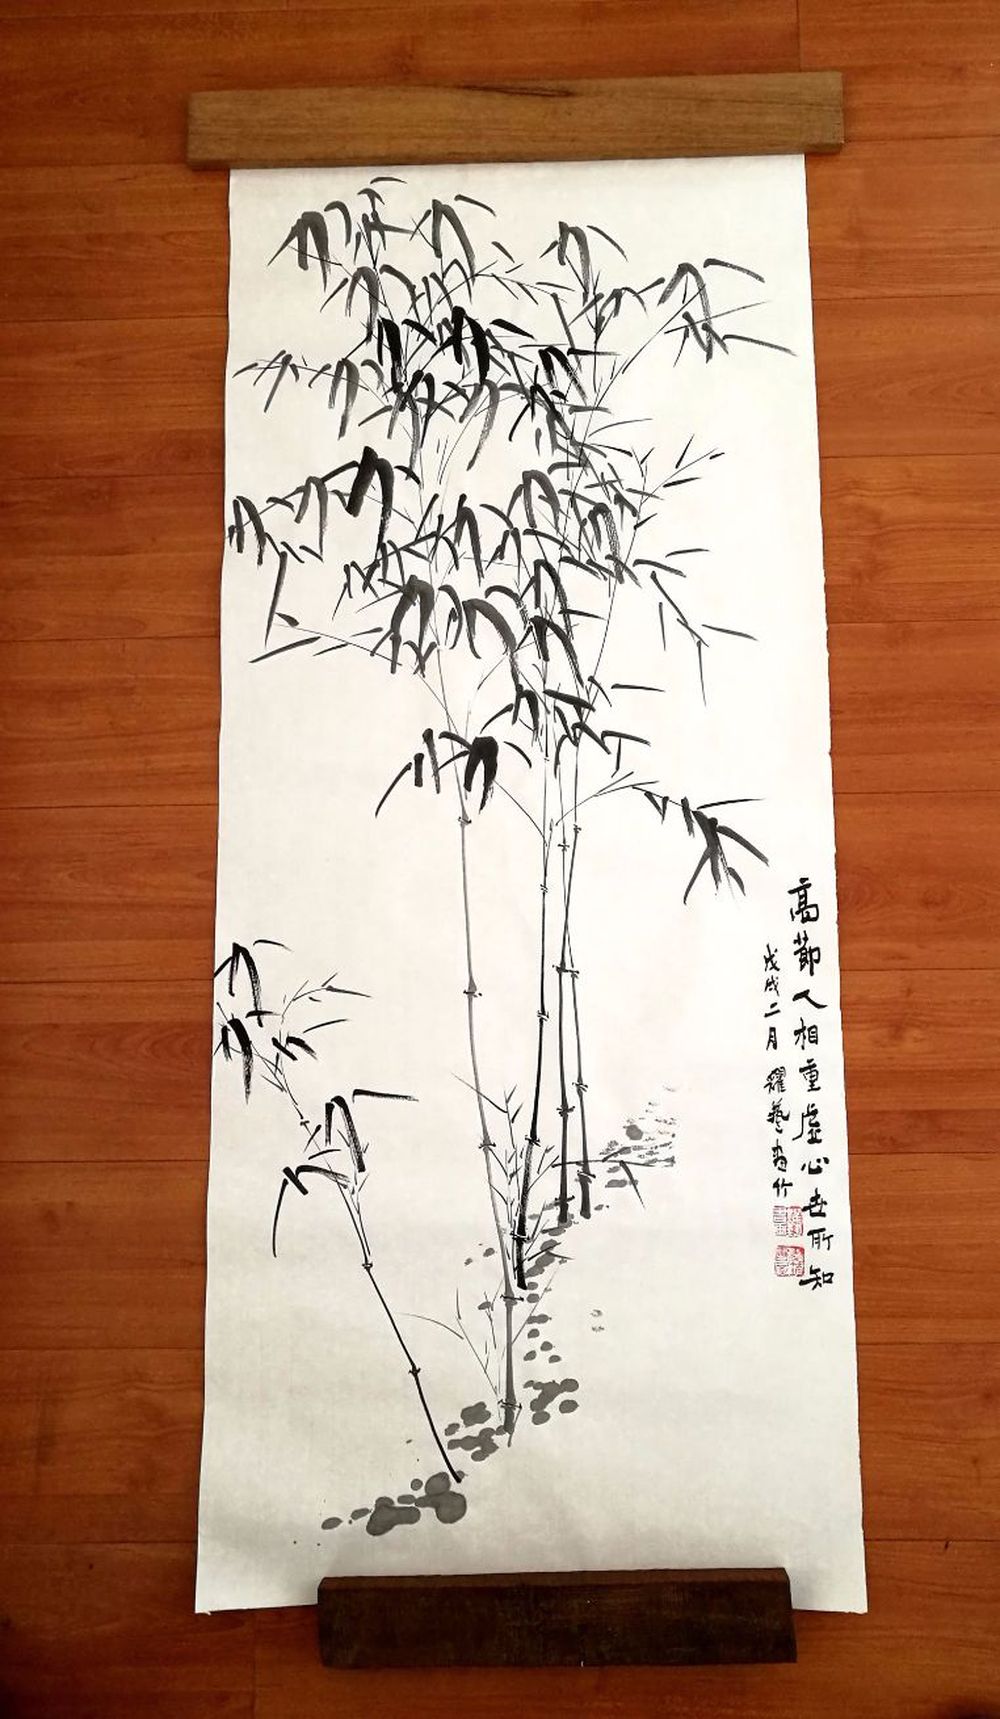 高節人相重虛心世所知
戊戌二月 耀藝畫竹